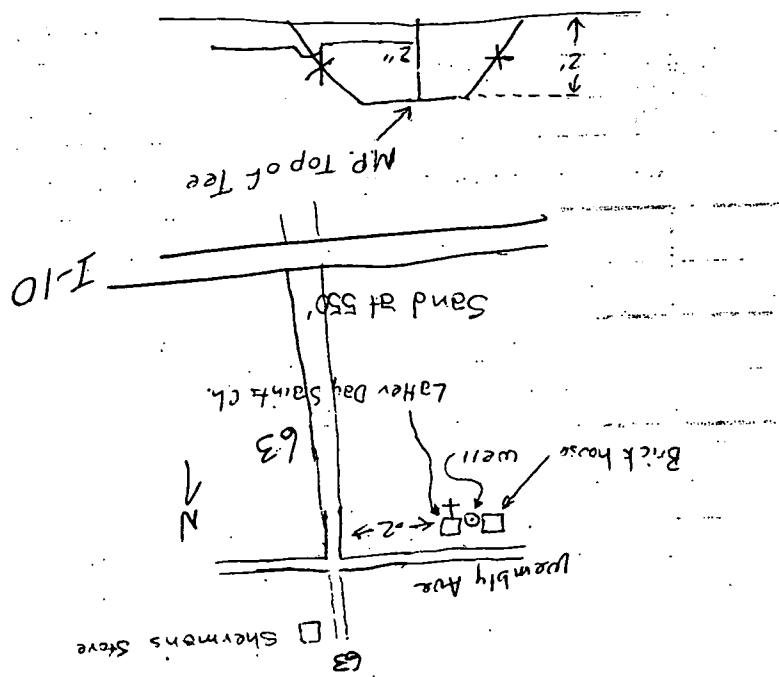 63
Shermon's Store
Wembly Ave
N
.2
Brick house
well
63
Latter Day Saints Ch.
Sand at 550'
I-10
M.P. Top of Tee
2'
2"